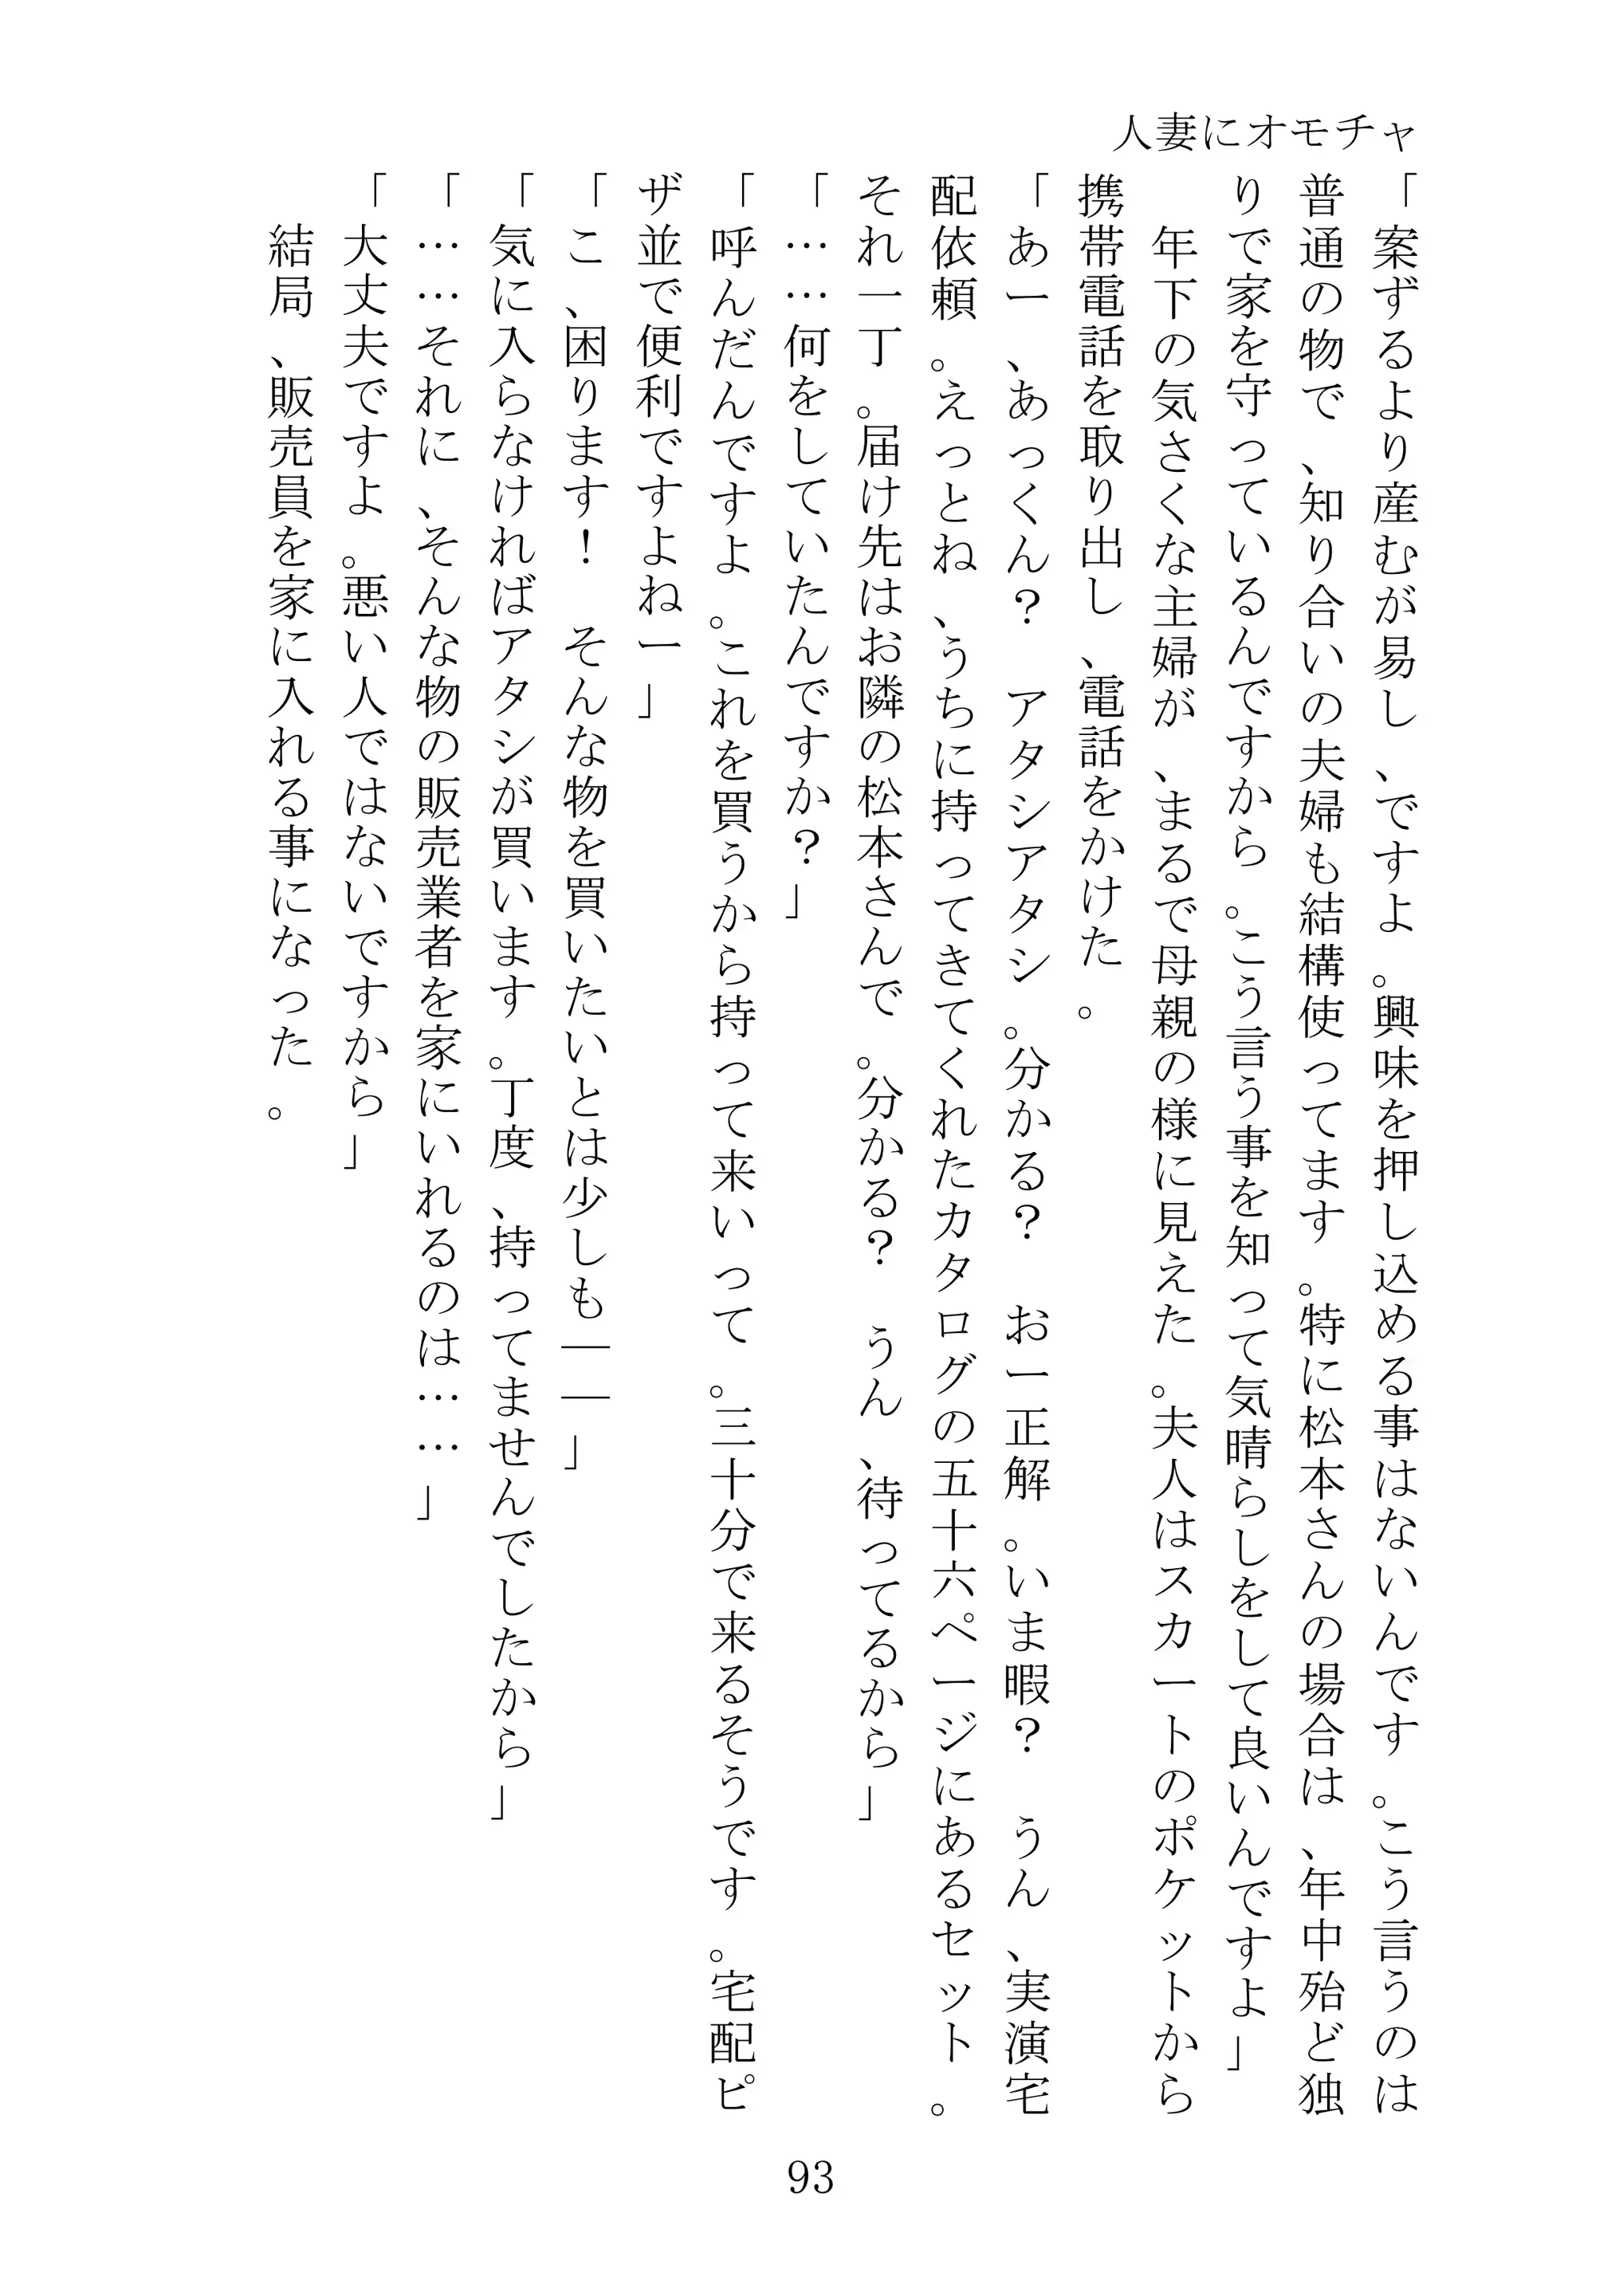 人妻にオモチャ
「案ずるより産むが易し、ですよ。興味を押し込める事はないんです。こう言うのは
普通の物で、知り合いの夫婦も結構使ってます。特に松本さんの場合は、年中殆ど独
りで家を守っているんですから。こう言う事を知って気晴らしをして良いんですよ」
　年下の気さくな主婦が、まるで母親の様に見えた。夫人はスカートのポケットから
携帯電話を取り出し、電話をかけた。
「あー、あっくん？　アタシアタシ。分かる？　おー正解。いま暇？　うん、実演宅
配依頼。えっとね、うちに持ってきてくれたカタログの五十六ページにあるセット。
それ一丁。届け先はお隣の松本さんで。分かる？　うん、待ってるから」
「……何をしていたんですか？」
「呼んだんですよ。これを買うから持って来いって。三十分で来るそうです。宅配ピ
ザ並で便利ですよねー」
「こ、困ります！　そんな物を買いたいとは少しも――」
「気に入らなければアタシが買います。丁度、持ってませんでしたから」
「……それに、そんな物の販売業者を家にいれるのは……」
「大丈夫ですよ。悪い人ではないですから」
　結局、販売員を家に入れる事になった。
93